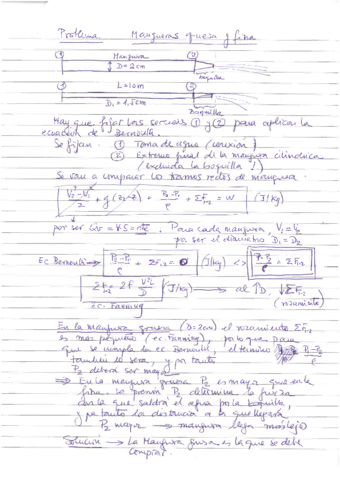 Problema Mangueras gruesa y fina
① Manguera ②
D = 2cm
Boquilla
① L = 10m ②
D₁ = 1,5cm Boquilla
Hay que fijar las secciones ① y ② para aplicar la
ecuación de Bernouilli.
Se fijan: ① Toma de agua (conexión)
② Extremo final de la manguera cilíndrica
(excluida la boquilla!)
Se van a comparar los tramos rectos de manguera
(V₂² - V₁²)/2 + g(z₂-z₁) + (P₂-P₁)/ρ + ΣF₁₂ = W (J/kg)
por ser Cav = V·S = cte. Para cada manguera, V₁ = V₂
por ser el diámetro D₁ = D₂
Ec Bernouilli → (P₂-P₁)/ρ + ΣF₁₂ = 0 (J/kg) <> (P₁-P₂)/ρ = ΣF₁₂
ΣF₁₂ = 2f V²L/D (J/kg) → al ↑D, ↓ΣF₁₂
Ec. Fanning (rozamiento)
En la manguera gruesa (D=2cm) el rozamiento ΣF₁₂
es más pequeño (ec Fanning), por lo que para
que se cumpla la ec Bernouilli, el término (P₁-P₂)/ρ
también lo será, y por tanto
P₂ deberá ser mayor
⇒ En la manguera gruesa P₂ es mayor que en la
fina. La presión P₂ determina la fuerza
con la que saldrá el agua por la boquilla,
y por tanto la distancia a la que llegará
P₂ mayor → manguera llega más lejos
Solución → La Manguera gruesa es la que se debe
comprar.